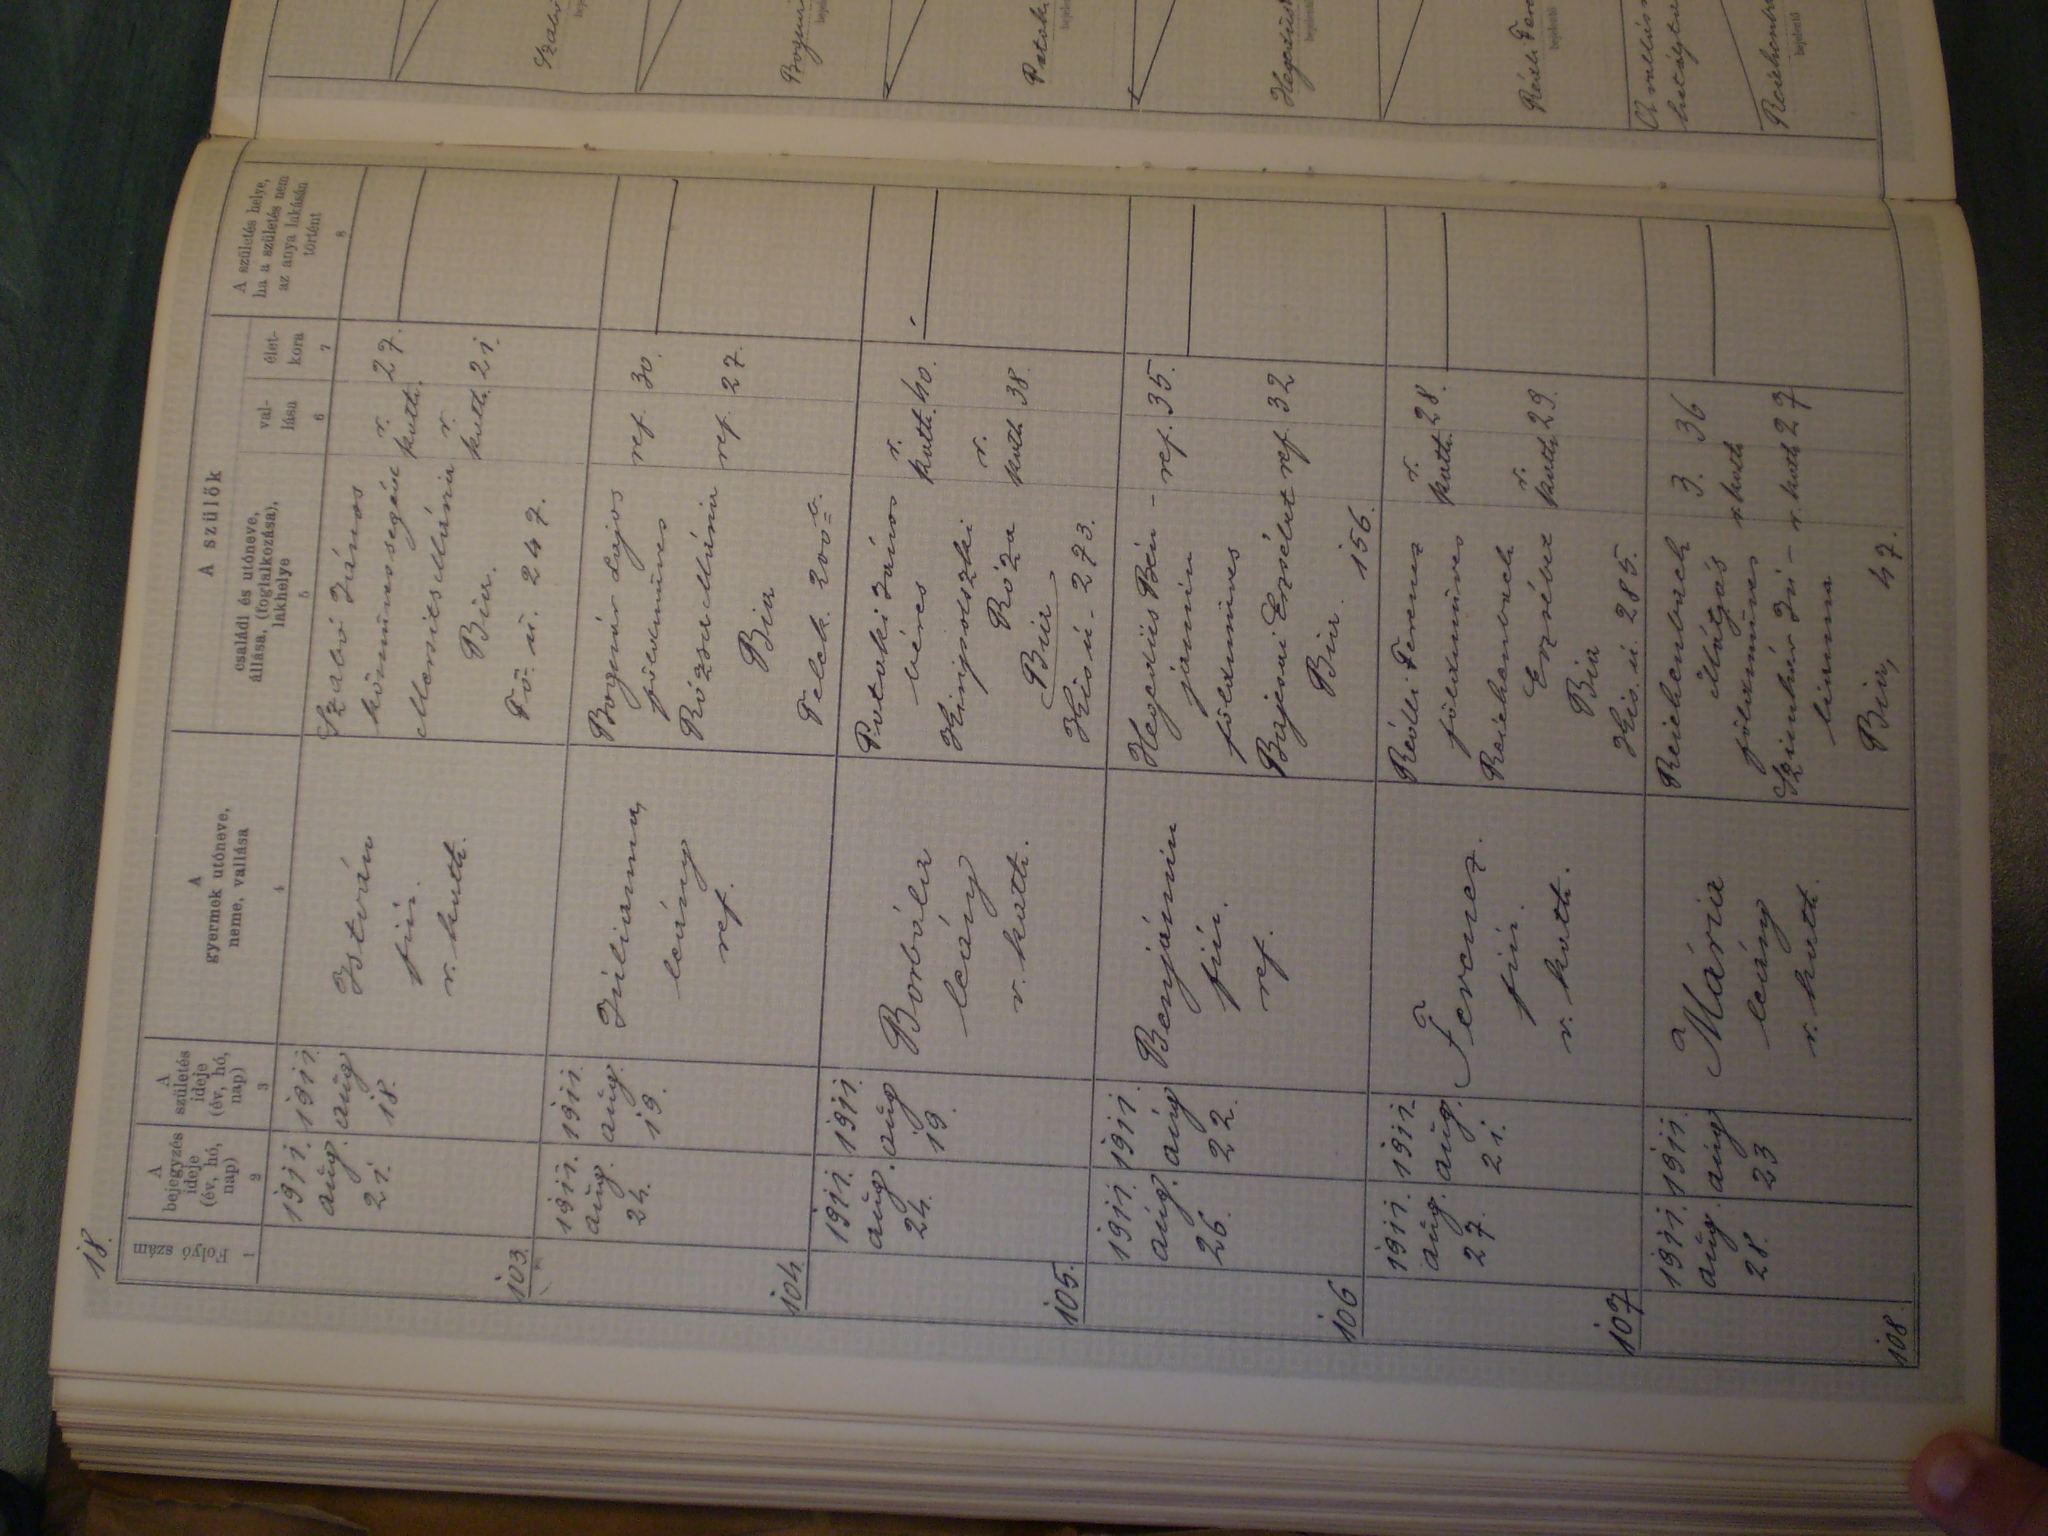 18.
Folyó szám
1
A
bejegyzés
ideje
(év, hó,
nap)
2
A
születés
ideje
(év, hó,
nap)
3
A
gyermek utóneve,
neme, vallása
4
A szülők
családi és utóneve,
állása, (foglalkozása),
lakhelye
5
val-
lása
6
élet-
kora
7
A születés helye,
ha a születés nem
az anya lakásán
történt
8
103.
1911.
aug.
21.
1911.
aug
18.
István
fiú.
r. kath.
Szabó János
kőművessegéd
Mersits Mária
Bia.
Fő. u. 247.
r.
kath.
27.
r.
kath.
21.
104.
1911.
aug.
24.
1911.
aug.
19.
Júlianna,
leány
ref.
Bognár Lajos
földműves
Rózsa Mária
Bia
Telek.
ref. 30.
ref. 27.
105.
1911.
aug.
24.
1911.
aug
19.
Borbála
leány
r. kath.
Pataki János
béres
Róza
Bia
Kis u. 273.
r.
kath. 40.
r.
kath 38.
106
1911.
aug.
26.
1911.
aug
22.
Benjámin
fiú.
ref.
Hegedüs Bén-
jámin
földműves
Bajnai Erzsébet
Bia. 156.
ref. 35.
ref 32
107
1911.
aug.
27.
1911.
aug.
21.
Ferencz.
fiú.
r. kath.
Révlli Ferencz
földműves
Reichenbach
Erzsébet
Bia
Kis. u. 285.
r.
kath. 28.
r.
kath 29.
108.
1911.
aug.
28.
1911.
aug
23
Mária
leány
r. kath.
Reichenbach
Mátyás
földműves
Szinhár Ju-
lianna
Bia, 47.
r. kath
36
r. kath 27
Szabó
Bognár
Pataki
Hegedüs
bejelentő
bejelentő